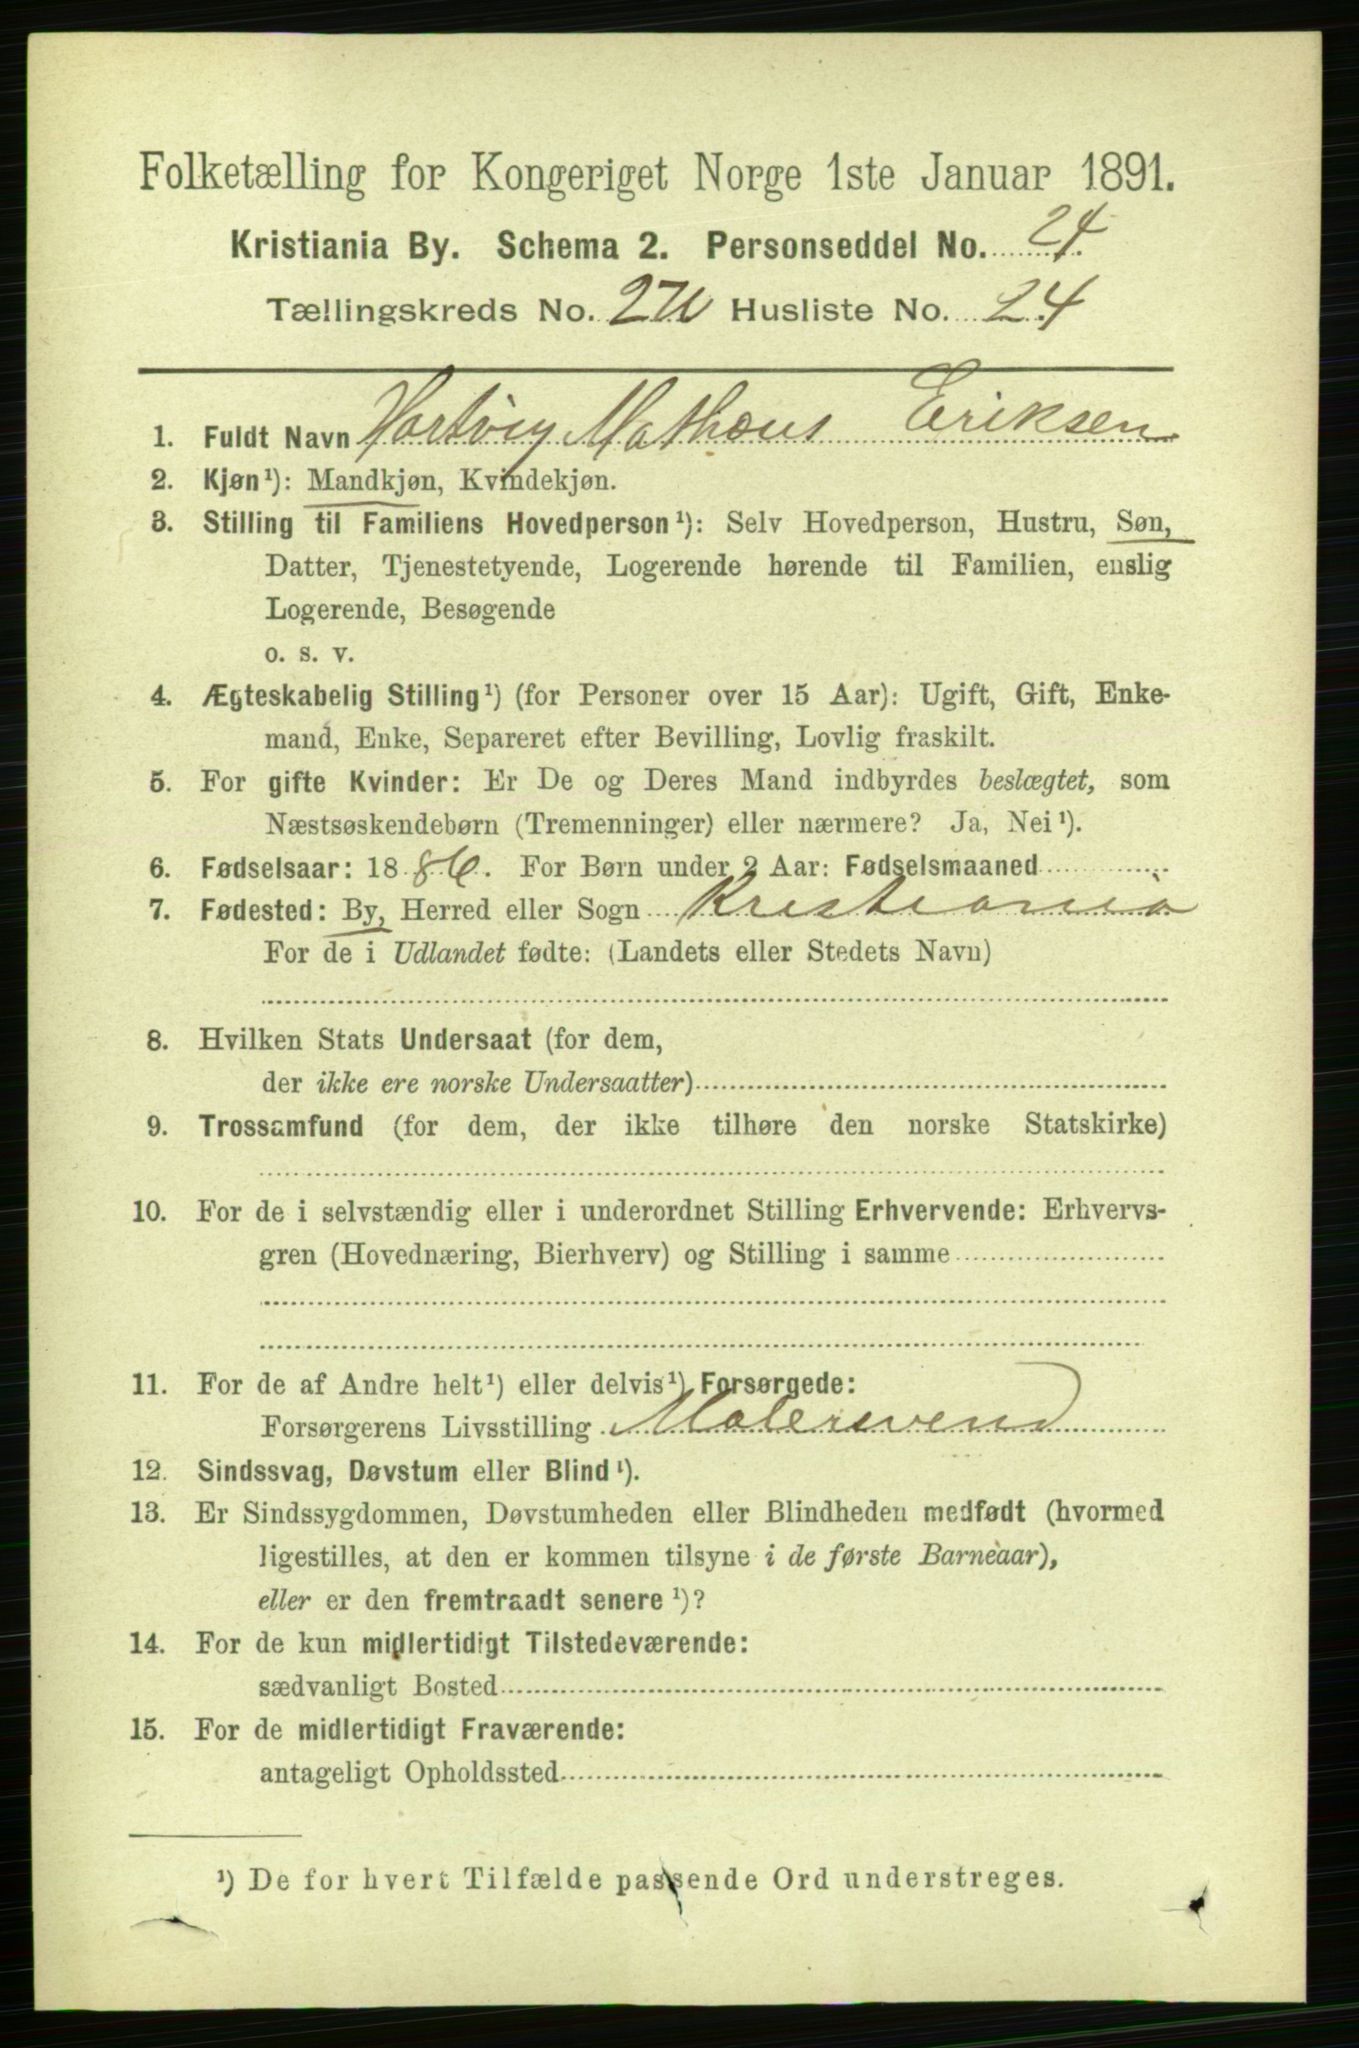 Folketælling for Kongeriget Norge 1ste Januar 1891.
Kristiania By. Schema 2. Personseddel No. 24.
Tællingskreds No. Husliste No. 24
1. Fuldt Navn Hartvig Mathæus Eriksen
2. Kjøn¹): Mandkjøn, Kvindekjøn.
3. Stilling til Familiens Hovedperson¹): Selv Hovedperson, Hustru, Søn,
Datter, Tjenestetyende, Logerende hørende til Familien, enslig
Logerende, Besøgende
o. s. v.
4. Ægteskabelig Stilling¹) (for Personer over 15 Aar): Ugift, Gift, Enke-
mand, Enke, Separeret efter Bevilling, Lovlig fraskilt.
5. For gifte Kvinder: Er De og Deres Mand indbyrdes beslægtet, som
Næstsøskendebørn (Tremenninger) eller nærmere? Ja, Nei¹).
6. Fødselsaar: 1886. For Børn under 2 Aar: Fødselsmaaned
7. Fødested: By, Herred eller Sogn Kristiania
For de i Udlandet fødte: (Landets eller Stedets Navn)
8. Hvilken Stats Undersaat (for dem,
der ikke ere norske Undersaatter)
9. Trossamfund (for dem, der ikke tilhøre den norske Statskirke)
10. For de i selvstændig eller i underordnet Stilling Erhvervende: Erhvervs-
gren (Hovednæring, Bierhverv) og Stilling i samme
11. For de af Andre helt¹) eller delvis¹) Forsørgede:
Forsørgerens Livsstilling Malersvend
12. Sindssvag, Døvstum eller Blind¹).
13. Er Sindssygdommen, Døvstumheden eller Blindheden medfødt (hvormed
ligestilles, at den er kommen tilsyne i de første Barneaar),
eller er den fremtraadt senere¹)?
14. For de kun midlertidigt Tilstedeværende:
sædvanligt Bosted
15. For de midlertidigt Fraværende:
antageligt Opholdssted
¹) De for hvert Tilfælde passende Ord understreges.